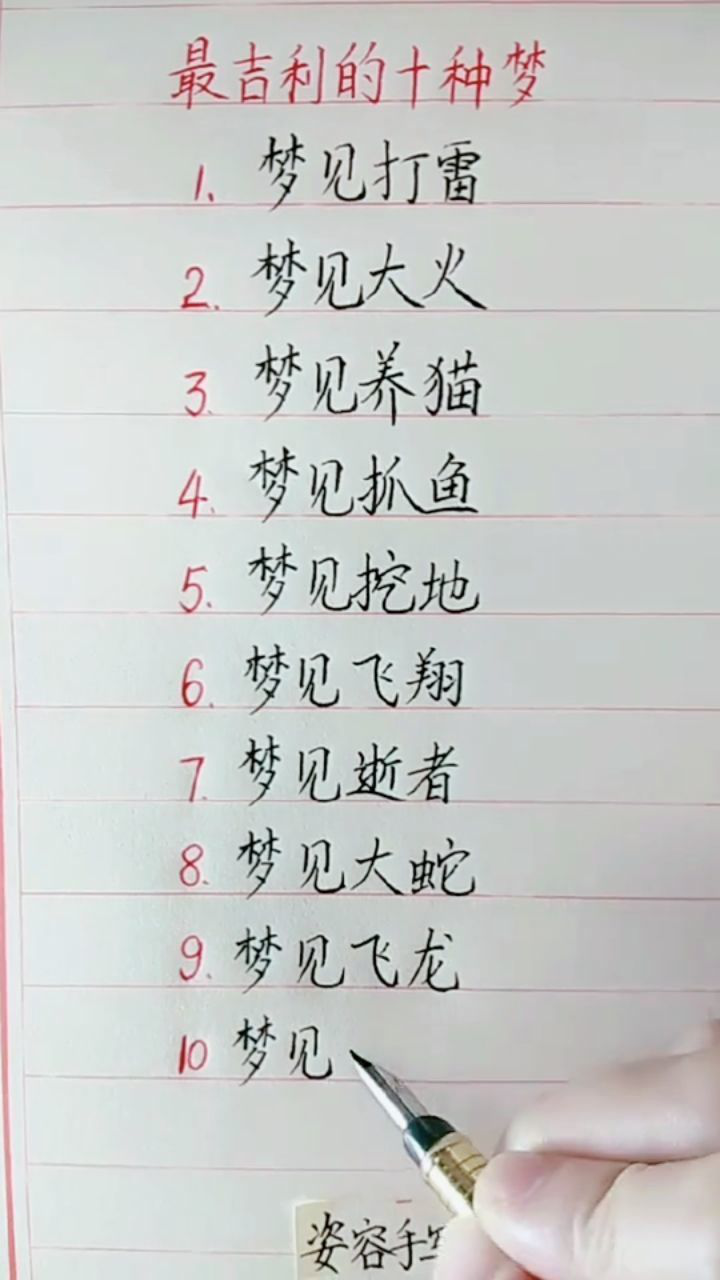 最吉利的十种梦
1、梦见打雷
2. 梦见大火
3. 梦见养猫
4. 梦见抓鱼
5. 梦见挖地
6. 梦见飞翔
7. 梦见逝者
8. 梦见大蛇
9. 梦见飞龙
10 梦见
姿容手写